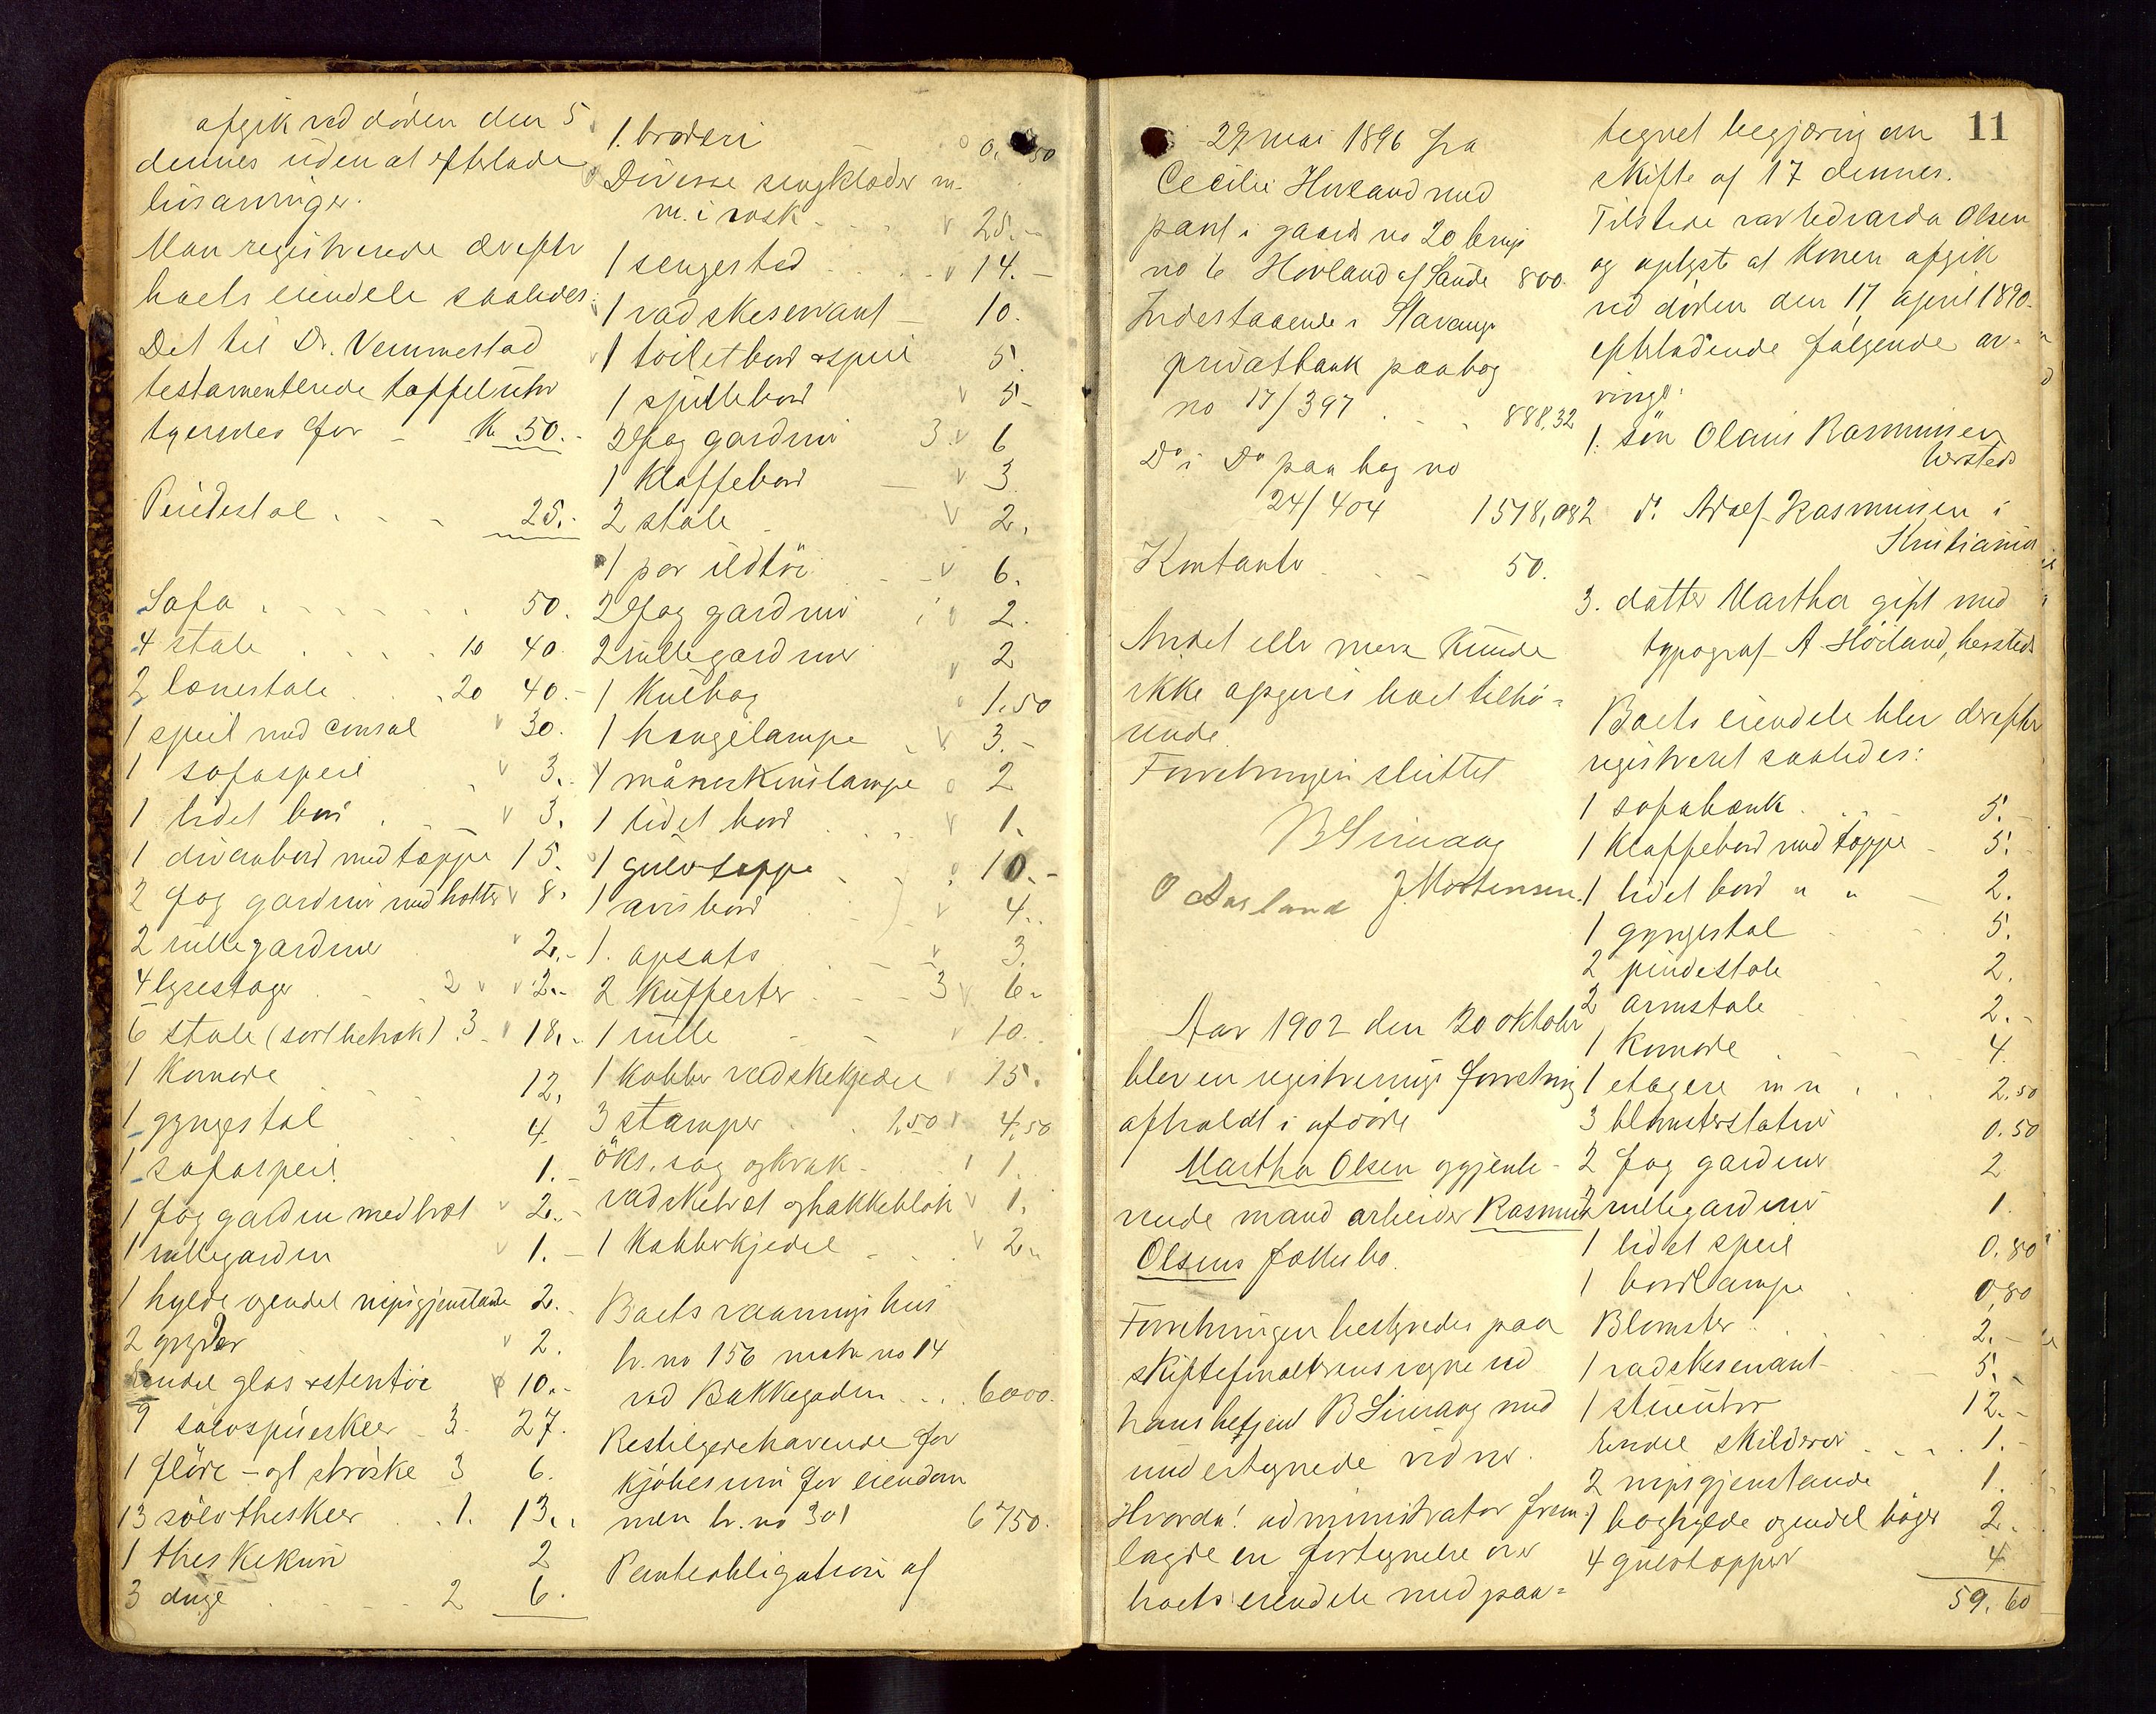 afgik ved døden den 5
dennes uden at efterlade
livsarvinger.
Man registrerede derefter
boets eiendele saaledes:
Det til Dr. Vemmestad
testamenterede taffeluhr
tgeredes for - Kr 50.-
Pindestol . . . 25.-
Sofa . . . . . 50.
4 stole . . . . 10 40.
2 lænestole . . 20 40.-
1 speil med consol v 30.
1 sofaspeil v 3.-
1 lidet bord . v 3.
1 divanbord med tæppe 15.
2 fag gardiner med holter v 8.
2 rullegardiner v 2.-
4 lysestager . . 2 v v 2.-
6 stole (sort betræk) . 3 - v 18.-
1 Komode . . 12.
1 gyngestol . . 4.
1 sofaspeil 1.-
1 fag gardin med bræt v 2.-
1 rullegardin v 1.-
1 hylde og endel nipsgjenstande 2.-
2 gryder v 2.
Endel glas & stentöi v 10.-
9 sölvspiseskeer - 3. 27.
1 flöde - og 1 ströske 3 6.
13 sölvtheskeer . . 1. 13..
1 theskekurv 2
3 duge . . . 2 6.
1. broderi o 0.50
Diverse sengklæder m.
m. i vask . . . v 25.-
1 sengested . . . v 14.-
1 vadskeservant - 10.
1 toiletbord & speil 5.
1 spillebord v 5-
2 fag gardiner 3 v 6
1 Klaffebord - v 3.
2 stole - v 2.
1 par ildtöi . - v 6.
2 fag gardiner o 2.
2 rullegardiner 2
1 Kuebag 1.50
1 hængelampe . v 3.-
1 måneskinslampe o 2
1 lidet bord . . v 1.
1 gulvtæppe . . 10.-
1 avisbord . v 4..
1. opsats - v 3.
2 Kufferter . . - 3 v 6.-
1 rulle - v 10.
1 kobber vadskekjedel v 15.
3 stamper . 1,50 v 4,50
öks, sag og kvak - 1.
vadskebræt og hakkeblok v 1.
1 Kobberkjedel - v 2.-
Boets vaaningshus
br. no 156 matr no 14
ved Bakkegaden . . . 6000.
Restilgodehavende for
kjöbesum for eiendom
men br. no 301 6750.
Panteobligation af
11
29 mai 1896 fra
Cecilie Hovland med
pant i gaards no 20 brugs
no 6 Hovland af Sande 800.
Indestaaende i Stavanger
privatbank paa bog
no 17/397 . . . 888,32
Do i Do paa bog no
24/404 1518,08
Kontanter . . - 50.
Andet eller mere kunde
ikke opgives boet tilhö-
rende.
Forretningen sluttet
B Liervaag
O Aasland J. Mortensen.
Aar 1902 den 20 oktober
blev en registrerings forretning
afholdt i afdöde
Martha Olsen og gjenle-
vende mand arbeider Rasmus
Olsens fællesbo.
Forretningen bestyredes paa
skifteforvalterens vegne ved
hans betjent B Liervaag med
undertegnede vidner.
Hvorda! administrator frem-
lagde en fortegnelse over
boets eiendele med paa-
tegnet begjæring om
skifte af 17 dennes.
Tilstede var Edvarda Olsen
og oplyste at Konen afgik
ved döden den 17 april 1890.
efterladende fölgende ar-
vinger:
1. sön Olaus Rasmussen
hersteds
2 do. Adolf Rasmussen i
Kristiania
3. datter Martha gift med
typograf A Höiland, hersteds
Boets eiendele blev derefter
registreret saaledes:
1 sofabænk . . . 5.-
1 Klaffebord med tæppe - 5.-
1 lidet bord " " - 2.
1 gyngestol . . . 5.
2 pindestole 2.
2 armstole 2.-
1 Komode . - - 4.
1 etagere m n . . . 2,50
3 blomsterstativer 0.50
2 fag gardiner 2
2 rullegardiner 1.
1 lidet speil 0.80
1 bordlampe . 0,80
Blomster . . . . 2.-
1 vadskeservant - 5.-
1 stueuhr 12.-
Endel skilderier . . . 1.-
2 nipsgjenstande 1.
1 boghylde og endel böger 2.
4 gulvtæpper 4
59.60